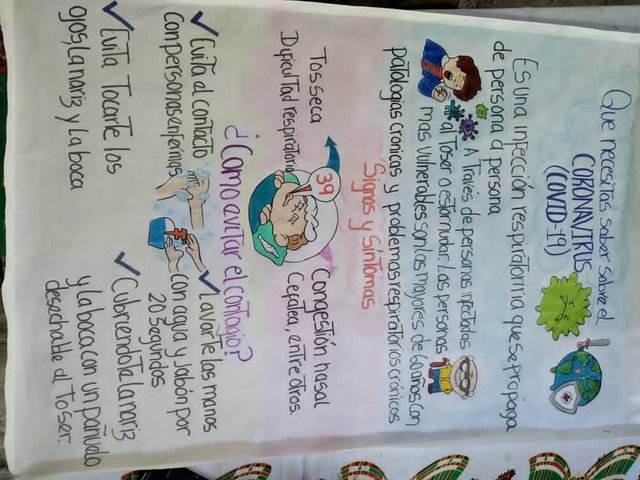 Que necesitas saber sobre el
CORONAVIRUS
(COVID-19)
Es una infección respiratoriria que se propaga
de persona a persona
A Través de personas infectadas
al Toser o estornudar. Las personas
mas vulnerables son las mayores de 60 años con
patologias cronicas y problemas respiratorios crónicos
Signos y Sintomas
Tos seca
Dificultad respiratoria
39
Congestión nasal
Cefalea, entre otros.
¿Como evitar el contagio?
Evita el contacto
con personas enfermas
Lavarte las manos
con agua y jabón por
20 segundos
Evita Tocarte los
ojos, la nariz y la boca
Cubriendote la nariz
y la boca con un pañuelo
desechable al Toser.